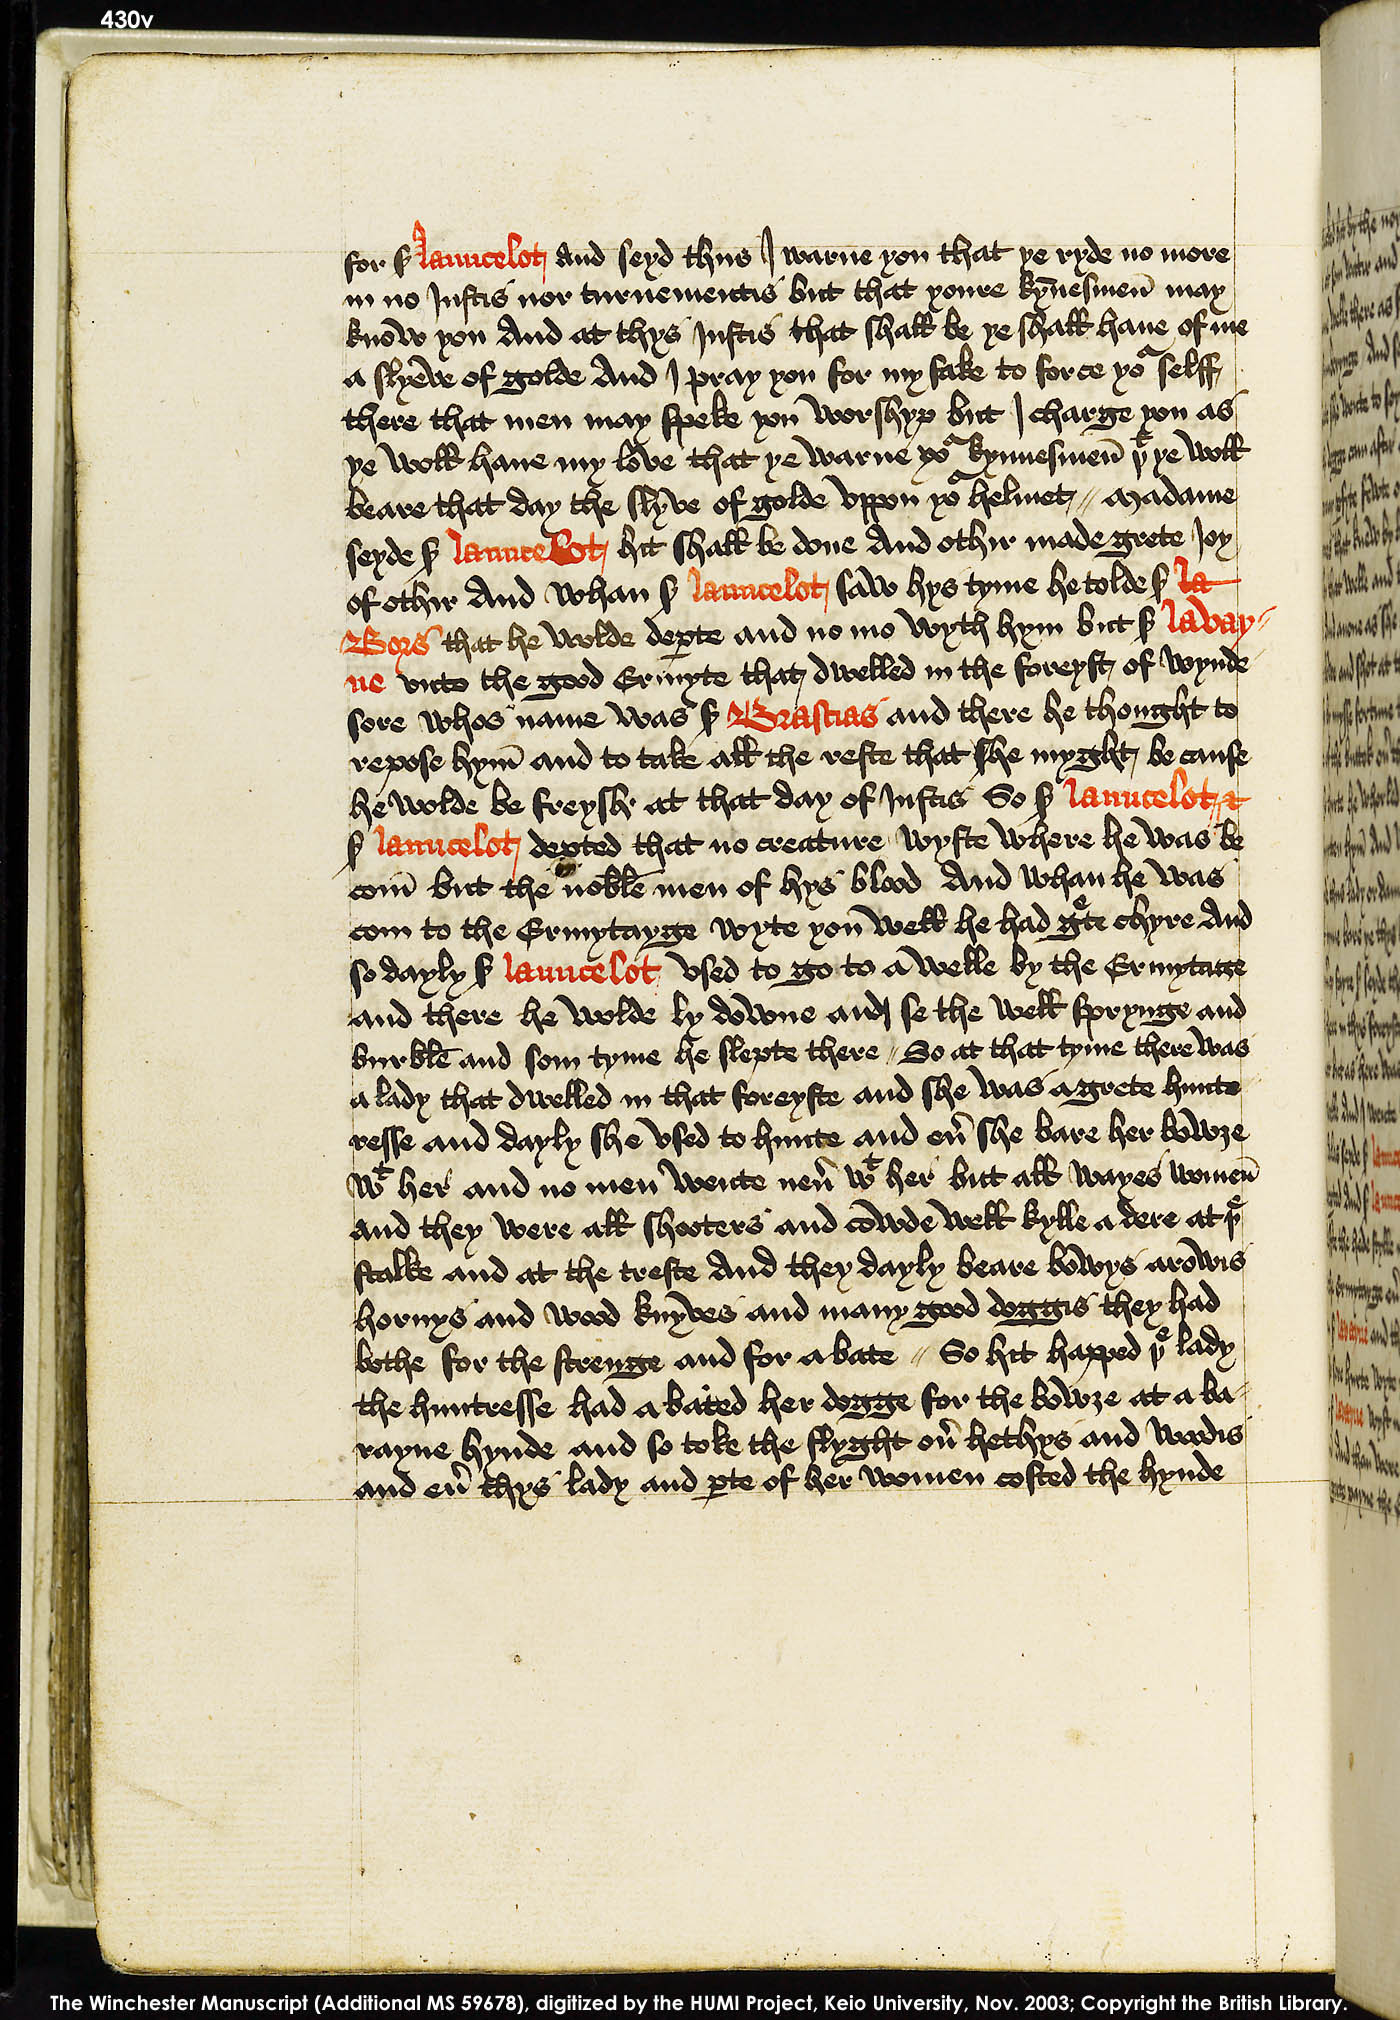 430v
for sʳ launcelot and seyd thus I warne you that ye ryde no more
in no Justis nor turnementis but that youre kyñesmen̄ may
know you And at thys Justis that shall be ye shall haue of me
a slyeve of golde And I pray you for my sake to force yoʳ selff
there that men may speke you worshyp but I charge you as
ye woll haue my love that ye warne yoʳ kynnesmen̄ yᵗ ye woll
beare that day the slyve of golde vppon yoʳ helmet // Madame
seyde sʳ launcelot hit shall be done And othir made grete Joy
of othir And whan sʳ launcelot saw hys tyme he tolde sʳ la
Bors that he wolde deꝑte and no mo wyth hym but sʳ lavay//
ne vnto the good Ermyte that dwelled in the foreyst of wynde
sore whos name was sʳ Brastias and there he thought to
repose hym̄ and to take all the reste that she myght be cause
he wolde be freysh at that day of Justis So sʳ launcelot // &
sʳ launcelot deꝑted that no creature wyste where he was be
com̄ but the noble men of hys blood And whan he was
com to the Ermytayge wyte you well he had gᵉte chyre And
so dayly sʳ launcelot vsed to go to a welle by the Ermytage
and there he wolde ly downe and se the well sprynge and
burble and som tyme he slepte there // So at that tyme there was
a lady that dwelled in that foreyste and she was a grete hunte
resse and dayly she vsed to hunte and eu̾ she bare her bowze
wᵗ her and no men wente neu̾ wᵗ her but all wayes women̄
and they were all shooters and cowde well kylle a dere at yᵉ
stalke and at the treste And they dayly beare bowys arowis
hornys and wood knyves and many good doggis they had
bothe for the strenge and for a bate // So hit happed yᵉ lady
the huntresse had a bated her dogge for the bowze at a ba//
rayne hynde and so toke the flyght ou̾ hethys and woodis
and eu̾ thys lady and ꝑte of her women costed the hynde
The Winchester Manuscript (Additional MS 59678), digitized by the HUMI Project, Keio University, Nov. 2003; Copyright the British Library.